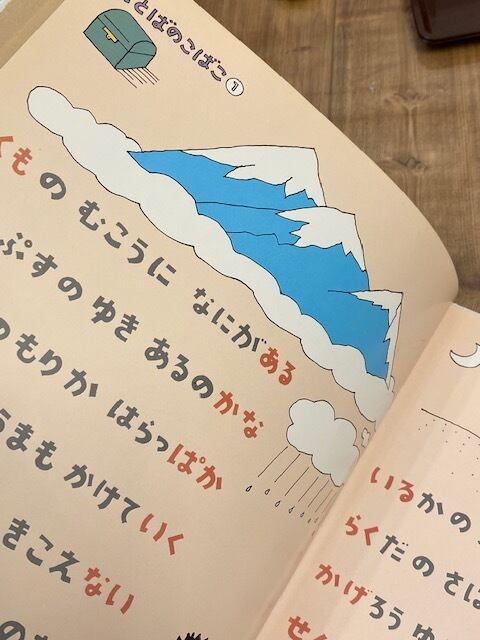 とばのこばこ 1
くもの むこうに なにがある
ぷすの ゆき あるのかな
のもりか はらっぱか
うまも かけていく
きこえない
いるかの
らくだの さば
かげろう ゆ
せく